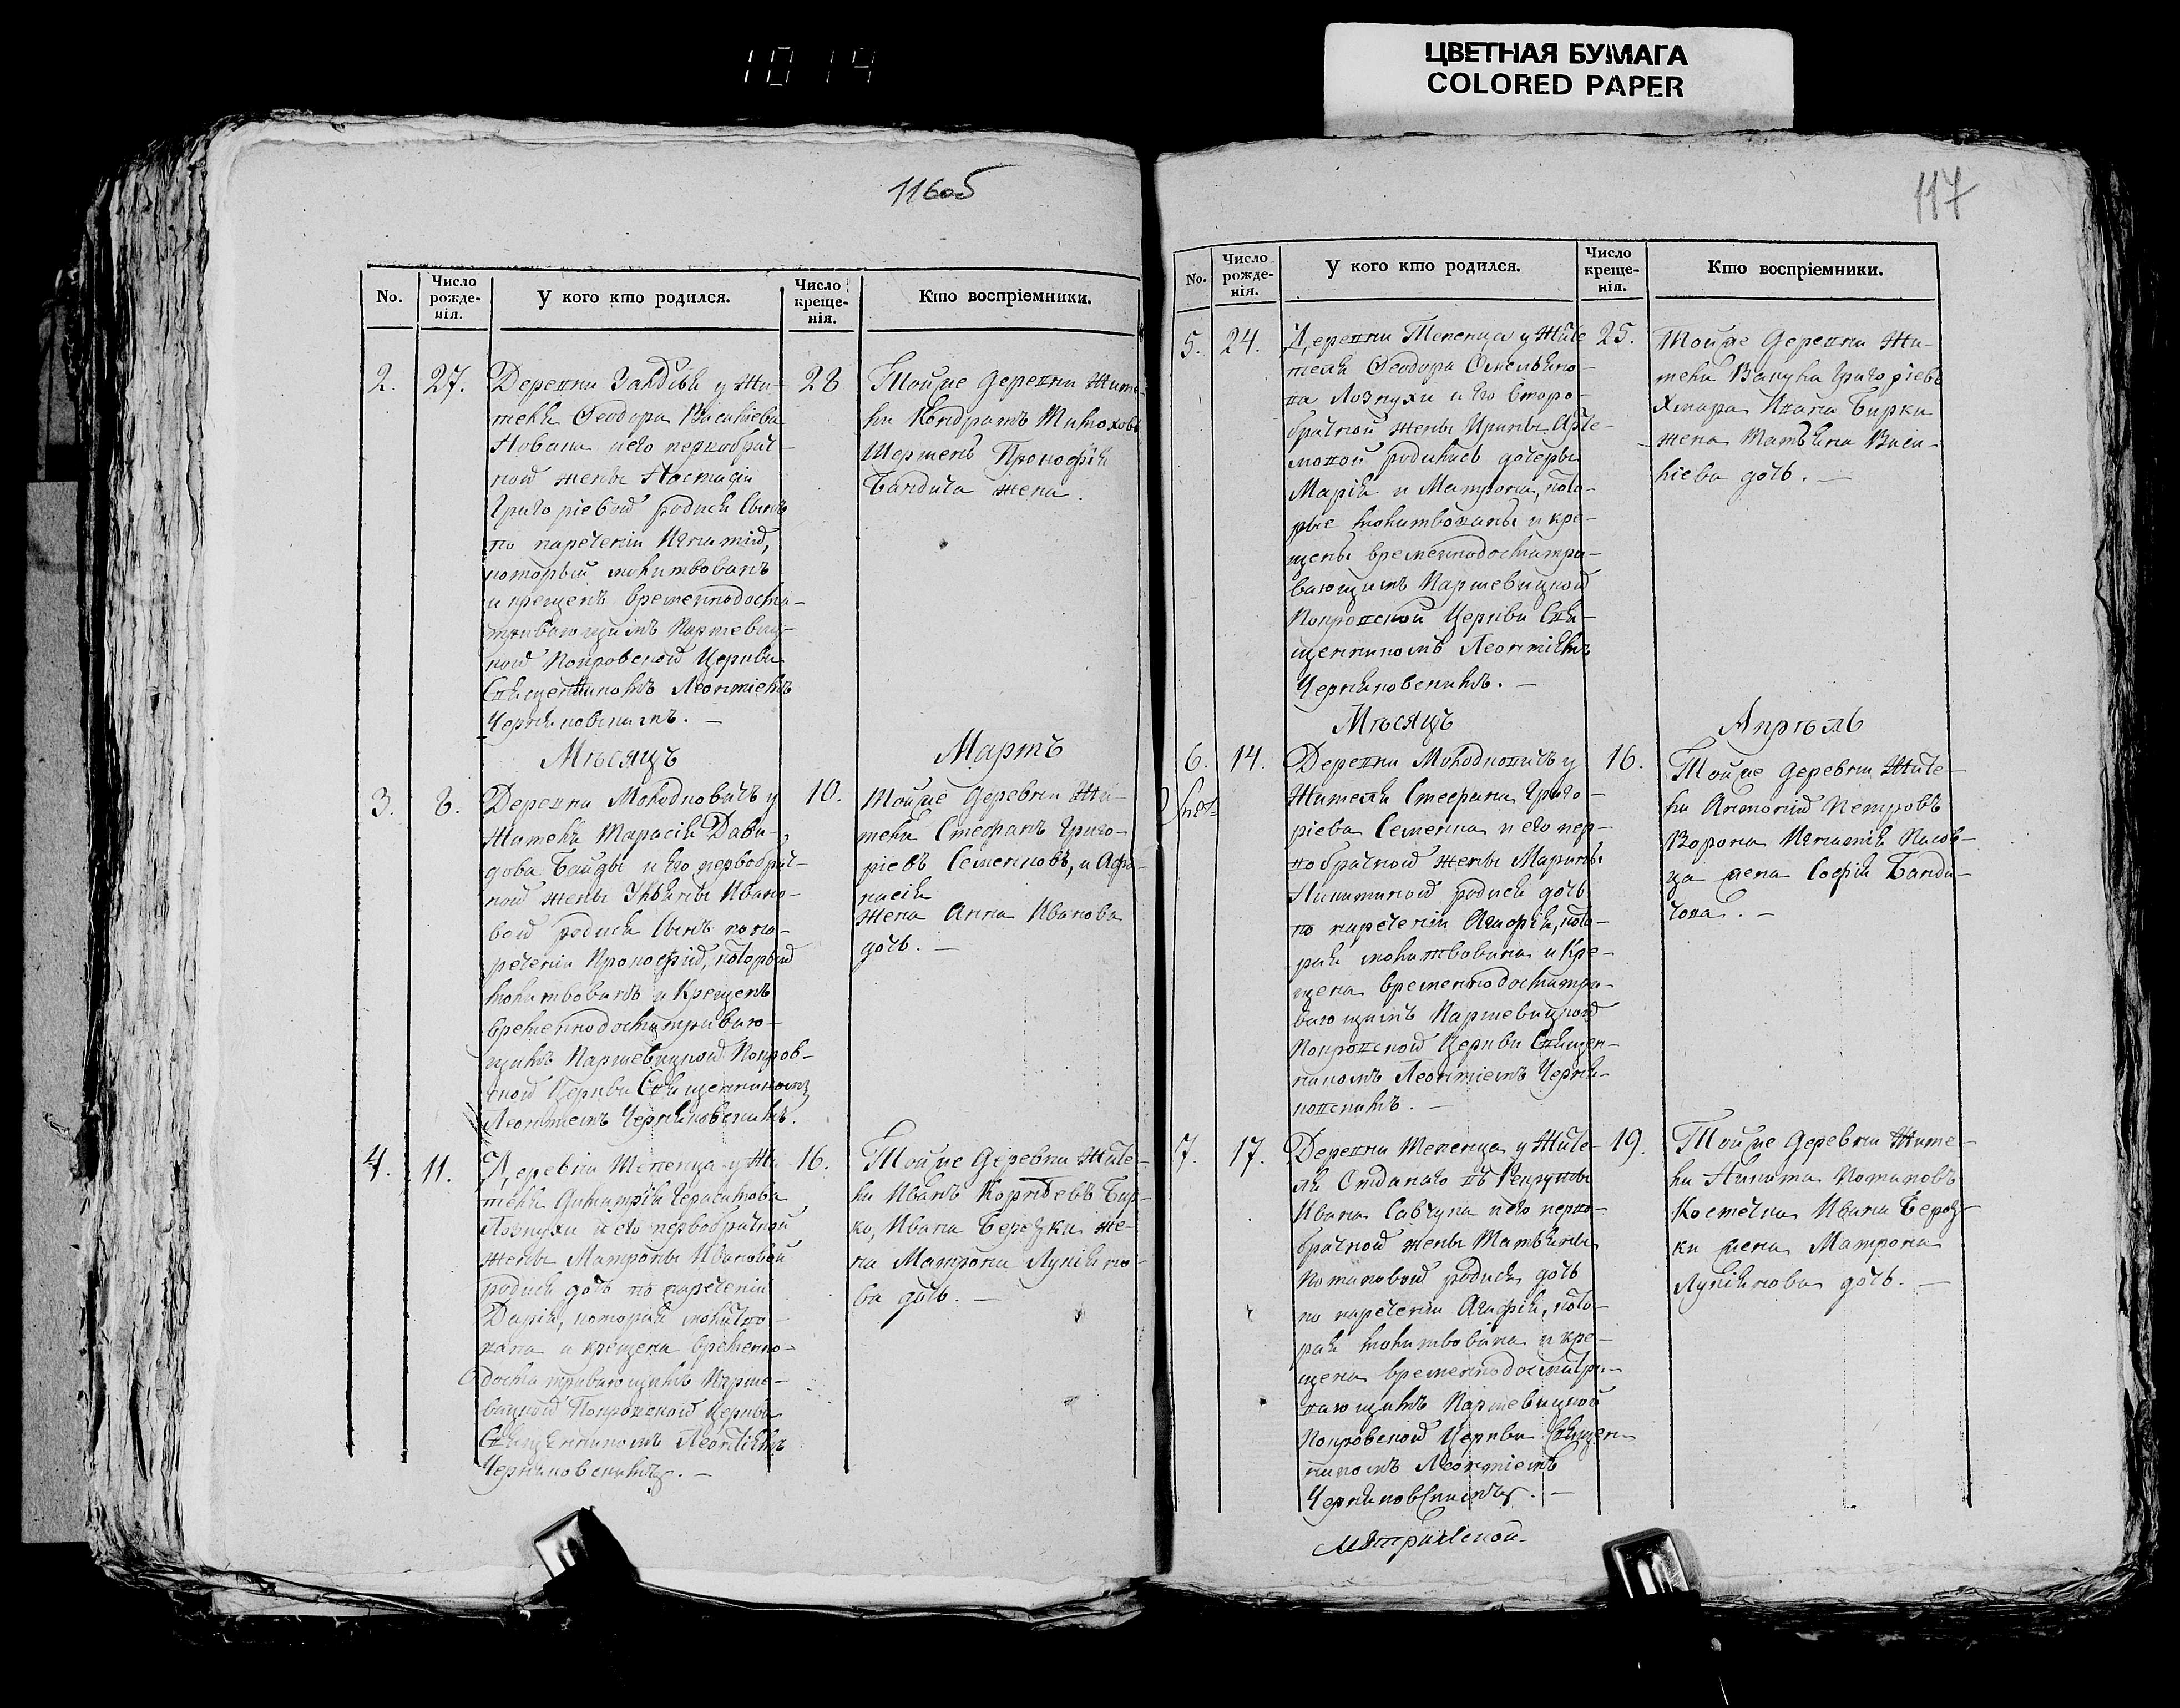 1014
ЦВЕТНАЯ БУМАГА
COLORED PAPER
116об
No.
Число рожденія.
У кого кто родился.
Число крещенія.
Кто воспріемники.
2.
27.
Деревни у Жи-
теля Ѳеодора Василіева
и его первобрач-
ной жены Настасіи
Григоріевой родися сынъ
по нареченіи Игнатій,
который молитвованъ
и крещенъ временнодосма-
тривающимъ Паршевиц-
кой Покровской Церкви
Священникомъ Леонтіемъ
Черняковскимъ. —
28
Тойже деревни Жите-
ли Кондратъ
Прокофія
Бандича жена.
Мѣсяцъ
Мартъ
3.
8.
Деревни Молодковичъ у
Жителя Тарасія Дави-
дова и его первобрач-
ной жены Ульяны Ивано-
вой родися сынъ по на-
реченіи Прокофій, который
молитвованъ и крещенъ
временнодосматриваю-
щимъ Паршевицкой Покров-
ской Церкви Священникомъ
Леонтіемъ Черняковскимъ.
10.
Тойже деревни Жи-
тели Стефанъ Григо-
ріевъ Семенковъ, и Афа-
насія
жена Анна Иванова
дочь. —
4.
11.
Деревни Тепенца у Жи-
теля Димитрія Герасимова
Лозпухи и его первобрачной
жены Матроны Ивановой
родися дочь по нареченіи
Дарія, которая молитво-
вана и крещена временно-
досматривающимъ Парше-
вицкой Покровской Церкви
Священникомъ Леонтіемъ
Черняковскимъ. —
16.
Тойже деревни Жите-
ли Иванъ Корнѣевъ Бир-
ко, Ивана Березки же-
на Матрона Лукіяно-
ва дочь. —
117
No.
Число рожденія.
У кого кто родился.
Число крещенія.
Кто воспріемники.
5.
24.
Деревни Тепенца у Жите
теля Ѳеодора Омельяно-
ва Лозпухи и его второ-
брачной жены Ирины Арте-
моной родились дочеры
Марія и Матрона, кото-
рые молитвованы и кре-
щены временнодосматри-
вающимъ Паршевицкой
Покровской Церкви Свя-
щенникомъ Леонтіемъ
Черняковскимъ. —
25.
Тойже деревни Жи-
тели Вакула Григоріевъ
Хмара Ивана Бирки
жена Татьяна Васи-
ліева дочь. —
Мѣсяцъ
Апрѣль
6.
14.
Деревни Молодковичъ у
Жителя Стефана Григо-
ріева Семенка и его пер-
вобрачной жены Марины
Никитиной родися дочь
по нареченіи Агафія, кото-
рая молитвована и кре-
щена временнодосматри-
вающимъ Паршевицкой
Покровской Церкви Священ-
никомъ Леонтіемъ Черня-
ковскимъ. —
16.
Тойже деревни Жите-
ли Антоній Петровъ
Ворона Игнатія
жена Софія Банди-
чова. —
7.
17.
Деревни Тепенца у Жите-
ля Отданаго въ Рекруты
Ивана Савчука и его перво-
брачной жены Татьяны
Потаповой родися дочь
по нареченіи Агафія, кото-
рая молитвована и кре-
щена временнодосматри-
вающимъ Паршевицкой
Покровской Церкви Священ-
никомъ Леонтіемъ
Черняковскимъ. —
19.
Тойже деревни Жите-
ли Никита Потаповъ
Костечка Ивана Берез-
ки жена Матрона
Лукіянова дочь. —